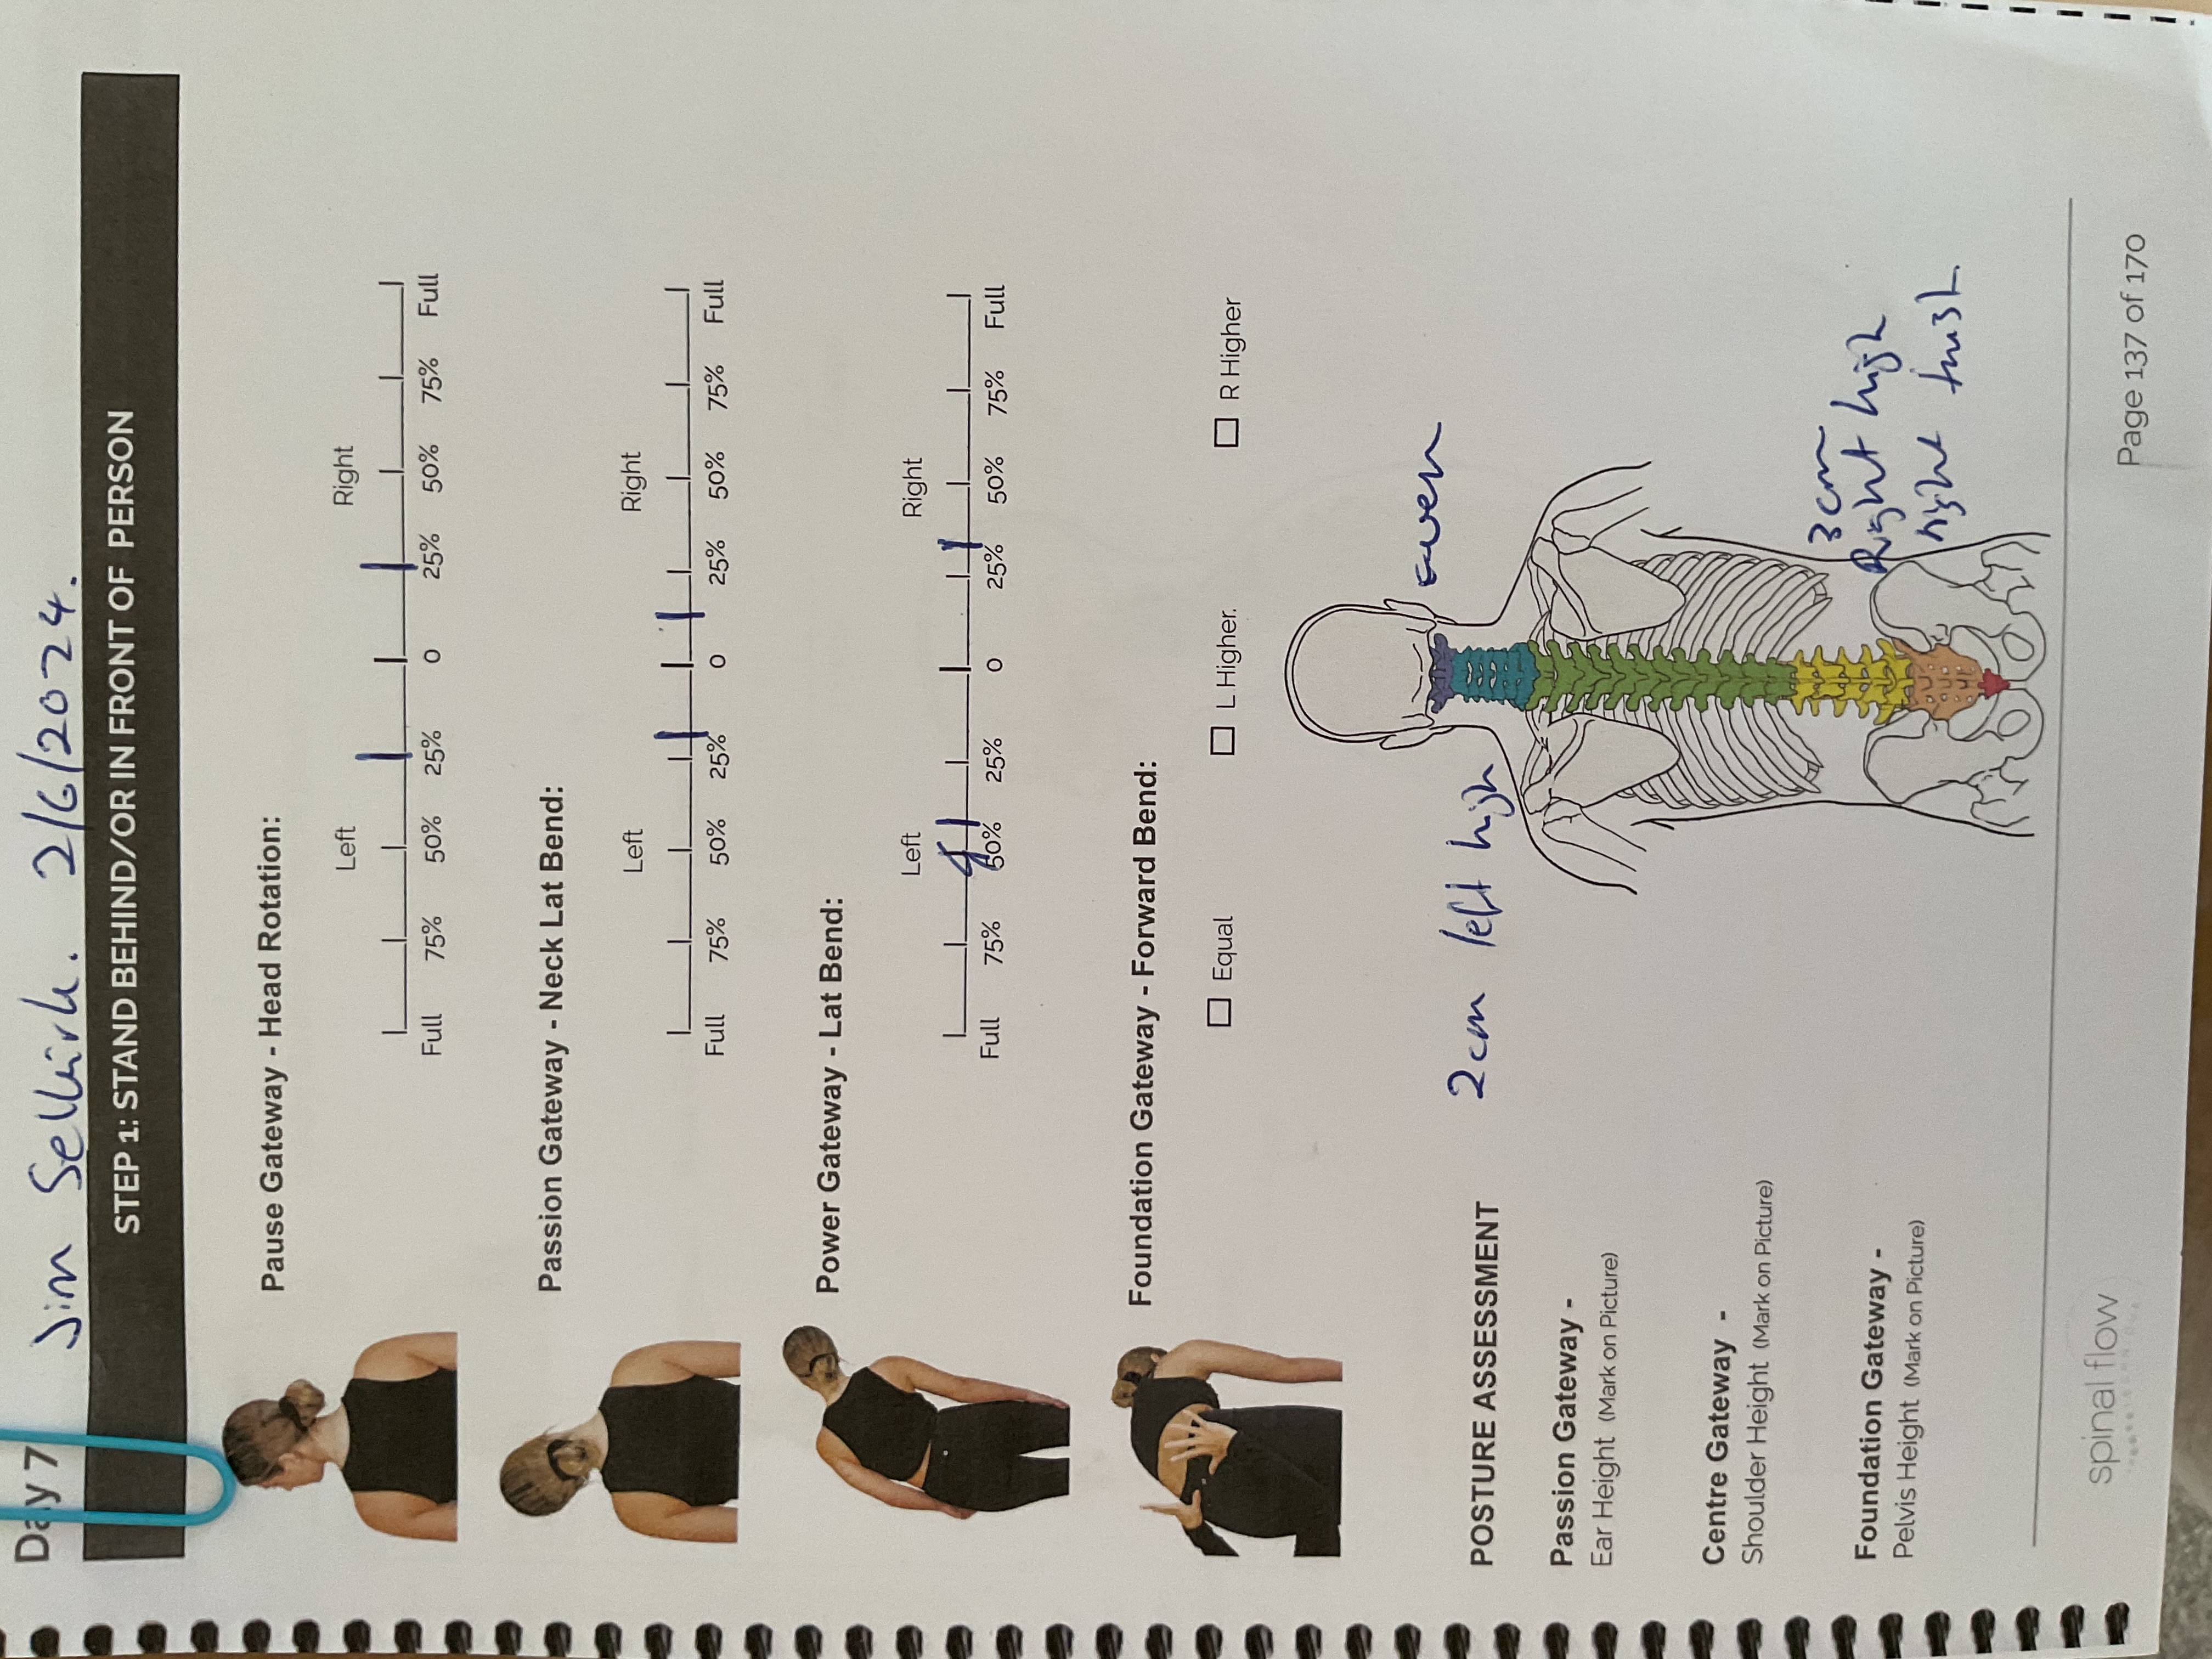 Day 7 Jim Selkirk. 2/6/2024.
STEP 1: STAND BEHIND/OR IN FRONT OF PERSON
Pause Gateway - Head Rotation:
Left Right
Full 75% 50% 25% 0 25% 50% 75% Full
Passion Gateway - Neck Lat Bend:
Left Right
Full 75% 50% 25% 0 25% 50% 75% Full
Power Gateway - Lat Bend:
Left Right
Full 75% 50% 25% 0 25% 50% 75% Full
Foundation Gateway - Forward Bend:
Equal L Higher. R Higher
even
POSTURE ASSESSMENT
2cm left high
Passion Gateway -
Ear Height (Mark on Picture)
Centre Gateway -
Shoulder Height (Mark on Picture)
3cm
Right high
right
Foundation Gateway -
Pelvis Height (Mark on Picture)
spinal flow
Page 137 of 170